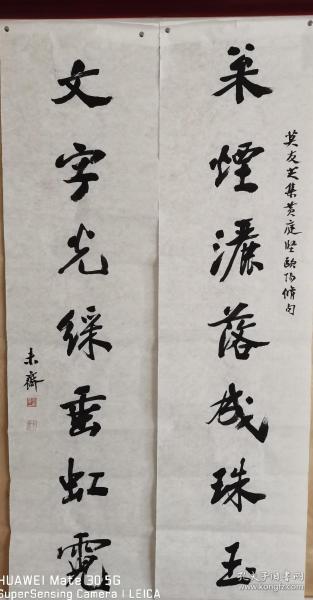 煙灑落成珠玉
莫友芝集黄庭坚歐陽脩句
文字光綵垂虹霓
未齋
HUAWEI Mate 30 5G
SuperSensing Camera | LEICA